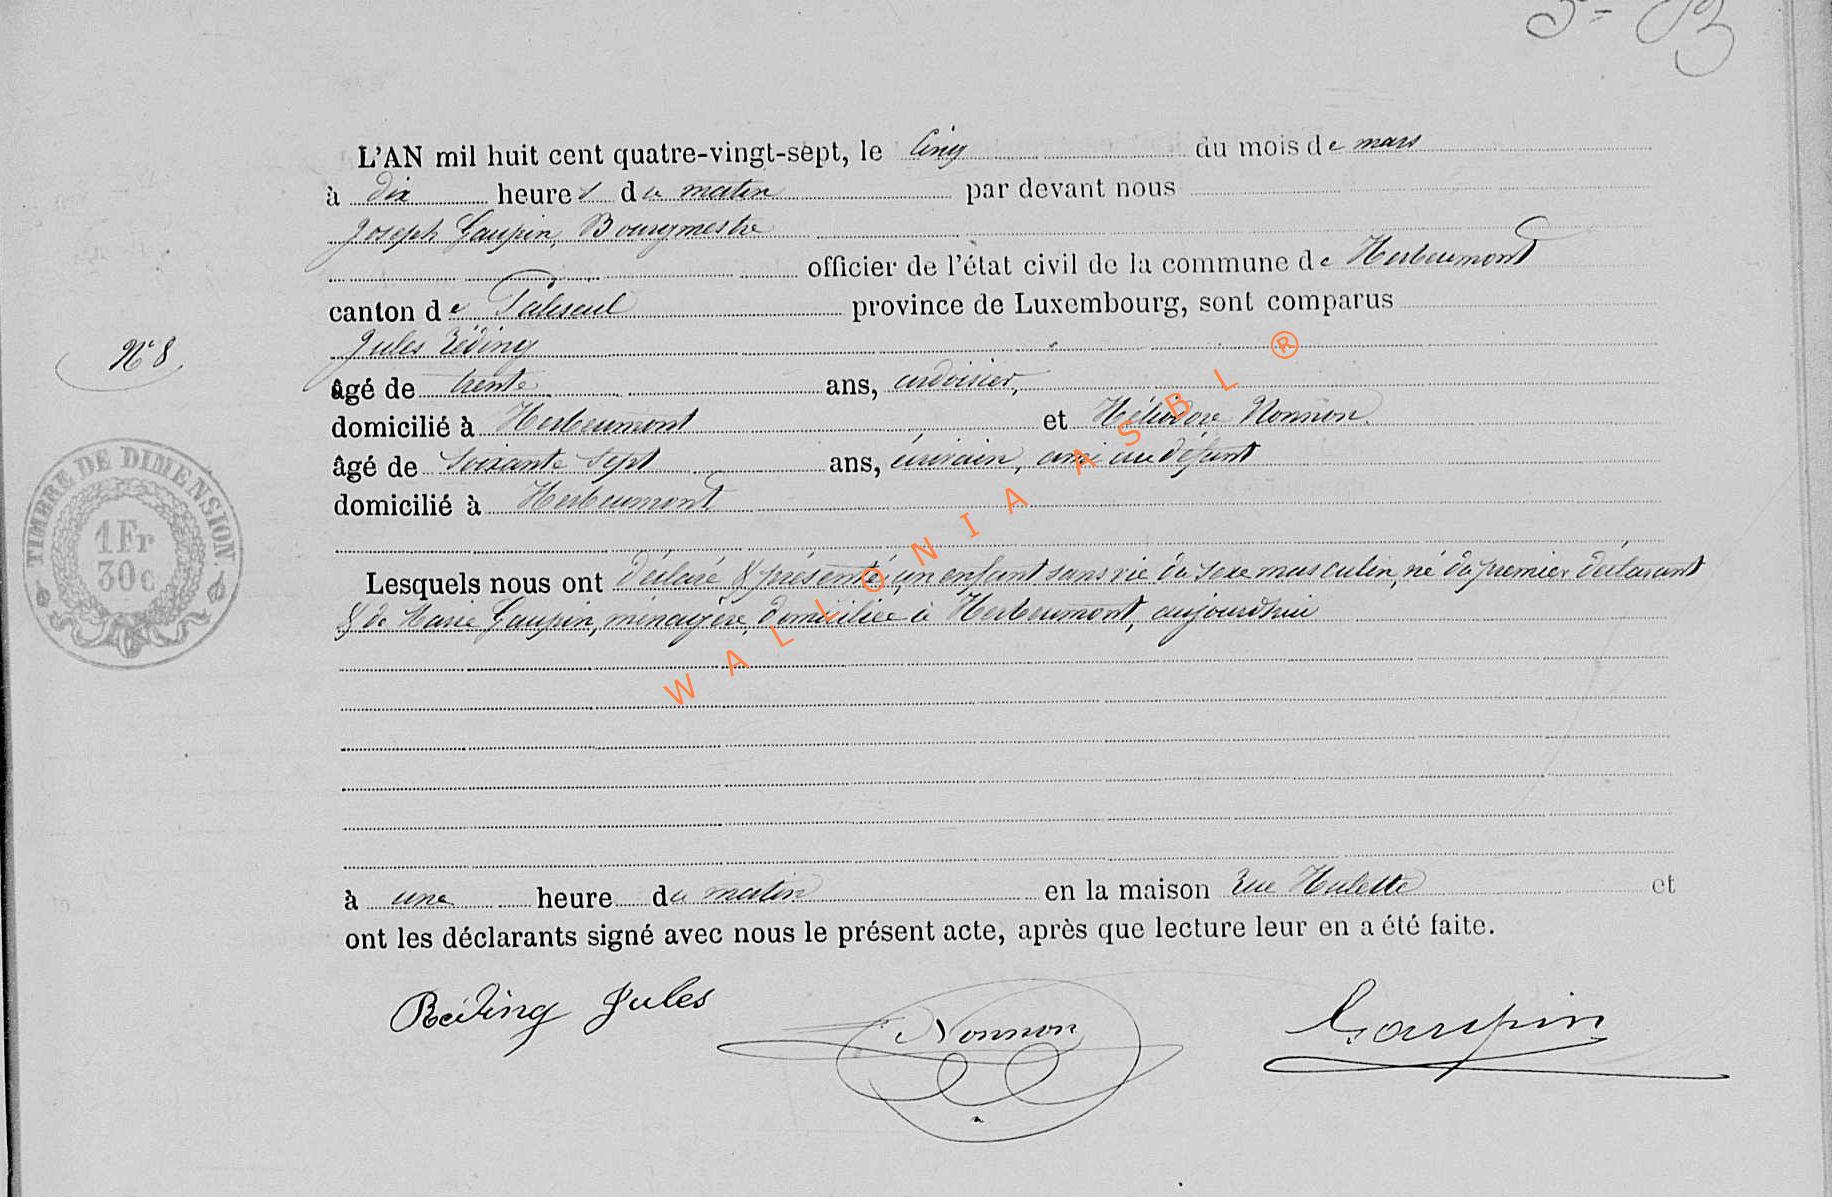 L'AN mil huit cent quatre-vingt-sept, le Cinq du mois de mars
à dix heures du matin par devant nous
Joseph Gaupin, Bourgmestre
officier de l'état civil de la commune de Herbeumont
canton de Paliseul province de Luxembourg, sont comparus
N° 8
Jules Réding
âgé de trente ans, ardoisier,
domicilié à Herbeumont et Héliodore Nonnon
âgé de soixante sept ans, écrivain, ami au défunt
domicilié à Herbeumont
Lesquels nous ont déclaré & présenté, un enfant sans vie du sexe masculin, né du premier déclarant
& de Marie Gaupin, ménagère, domiciliée à Herbeumont, aujourd'hui
à une heure du matin en la maison rue Hulette et
ont les déclarants signé avec nous le présent acte, après que lecture leur en a été faite.
Réding Jules Nonnon Gaupin
TIMBRE DE DIMENSION.
1 Fr
30c
WALLONIA ASBL ®